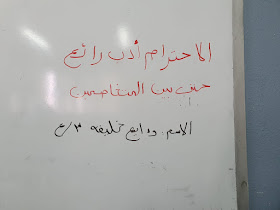 الاحترام أدب رائع
حتى بين المتخاصمين
الاسم: ودايع خليفه ٣/ع